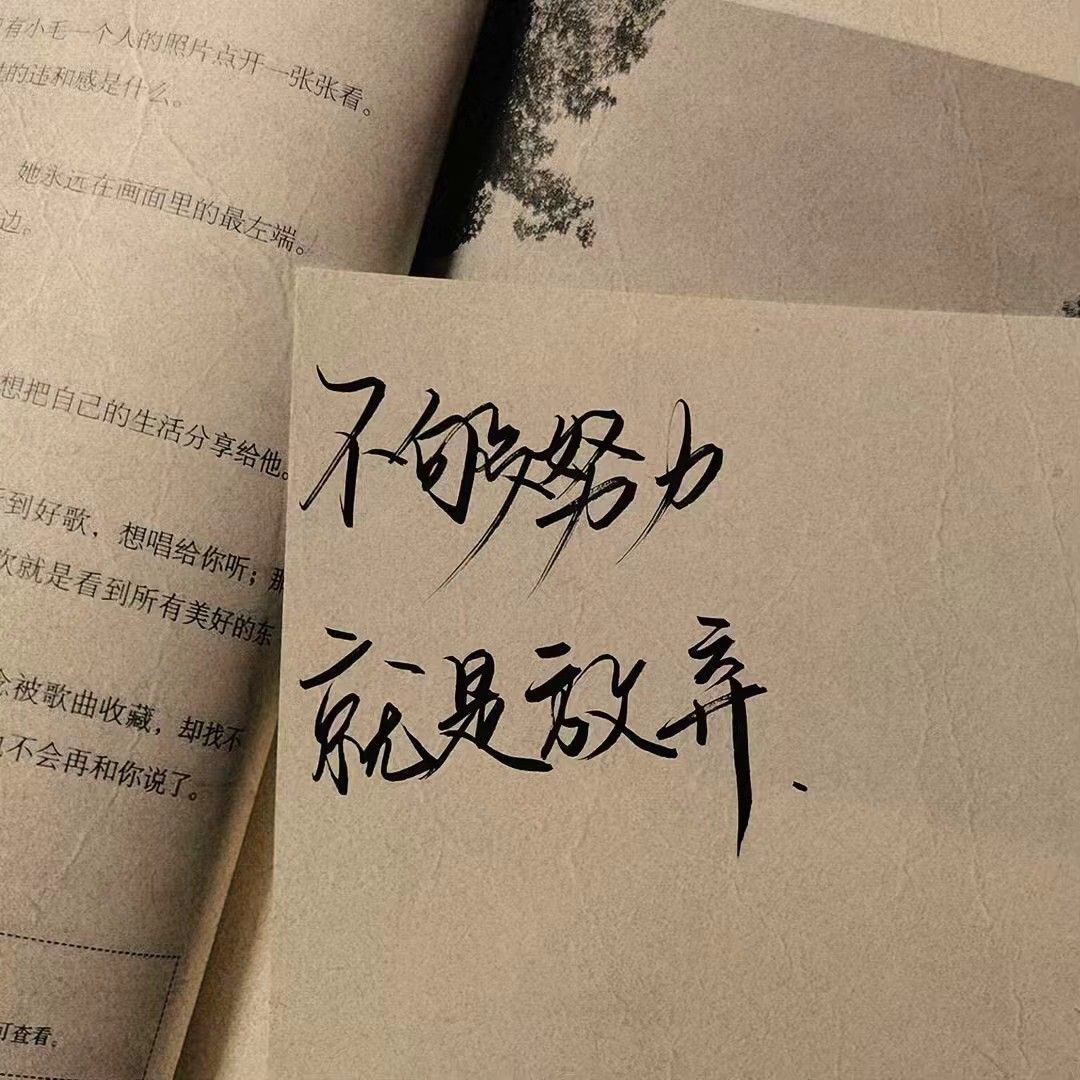 有小毛一个人的照片点开一张张看。
的违和感是什么。
她永远在画面里的最左端。
边。
想把自己的生活分享给他。
到好歌，想唱给你听；那
欢就是看到所有美好的东
念被歌曲收藏，却找不
不会再和你说了。
可查看。
不够努力
就是放弃.